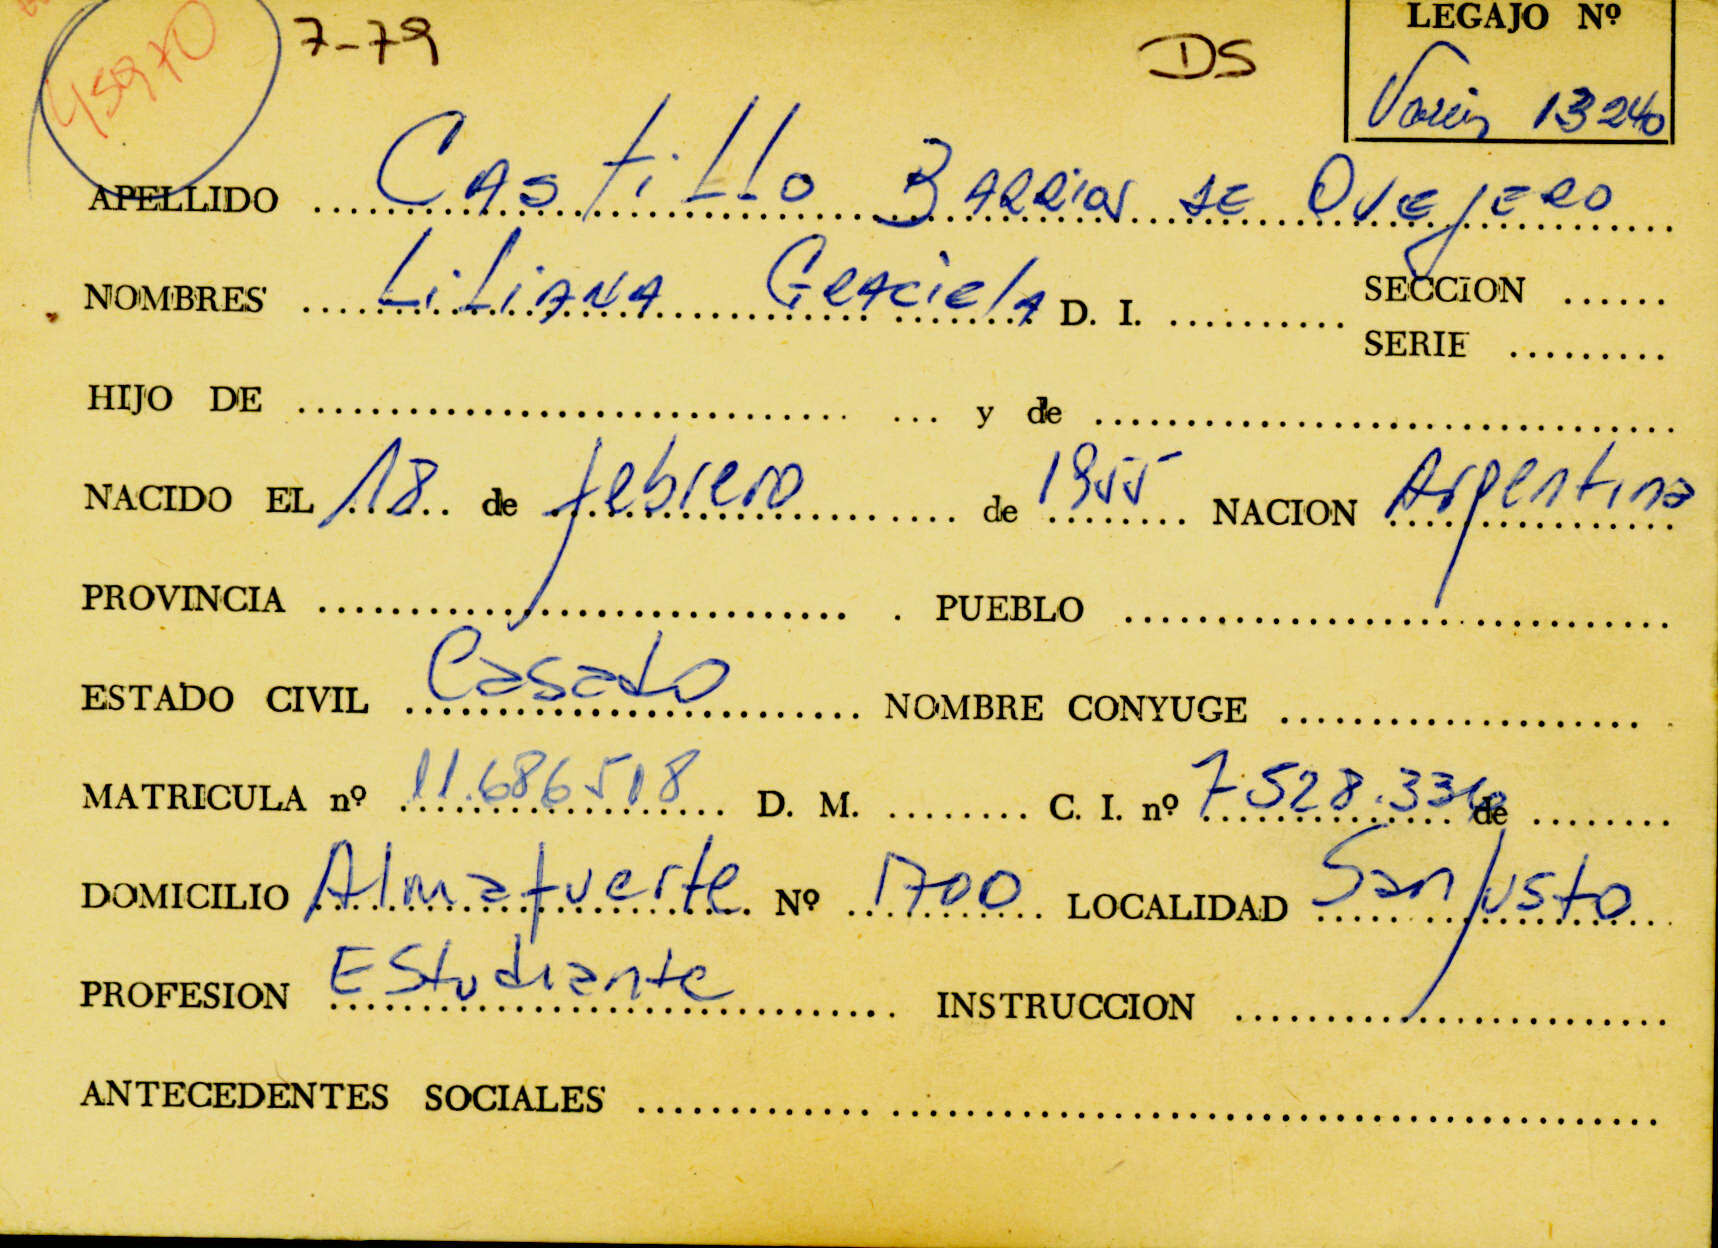 45970 7-79 DS LEGAJO Nº
Varios 13240
APELLIDO Castillo Barrios de Ovejero
NOMBRES Liliana Graciela D. I. SECCION
SERIE
HIJO DE y de
NACIDO EL 18 de febrero de 1955 NACION Argentina
PROVINCIA PUEBLO
ESTADO CIVIL Casado NOMBRE CONYUGE
MATRICULA nº 11.686518 D. M. C. I. nº de
DOMICILIO Almafuerte Nº 1700 LOCALIDAD San Justo
PROFESION Estudiante INSTRUCCION
ANTECEDENTES SOCIALES